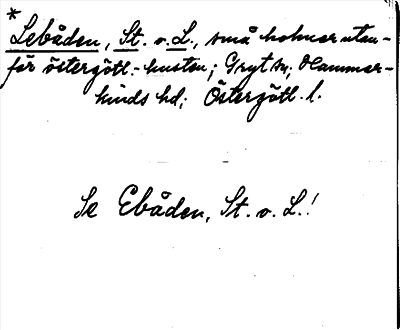 *
Lebåden, St. o. L., små holmar utan-
för östergötl.-kusten; Gryt sn; Hammar-
kinds hd; Östergötl. l.
Se Ebåden, St. o. L.!